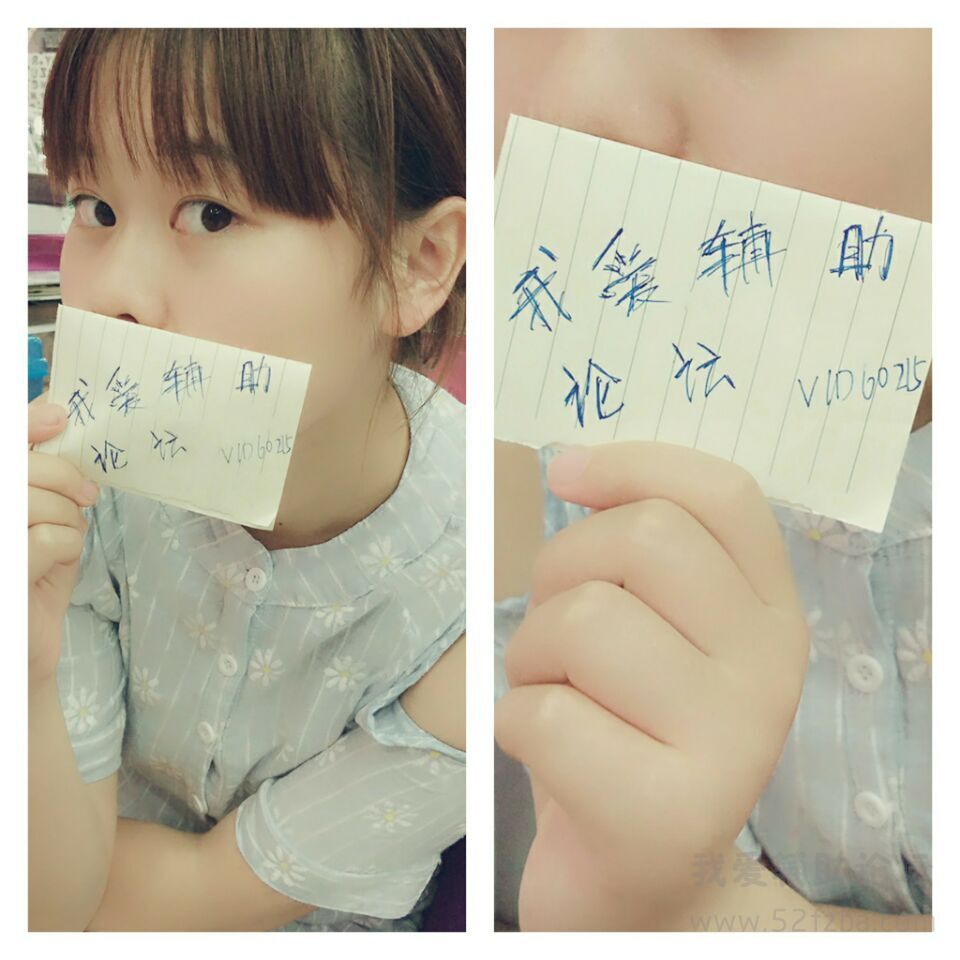 我爱辅助
论坛 VID60215
我爱辅助
论坛 VID60215
我爱辅助论坛
www.52fzba.com